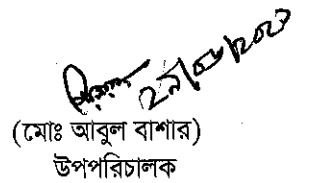 ২৯/০৮/২০২৩
(মোঃ আবুল বাশার)
উপপরিচালক